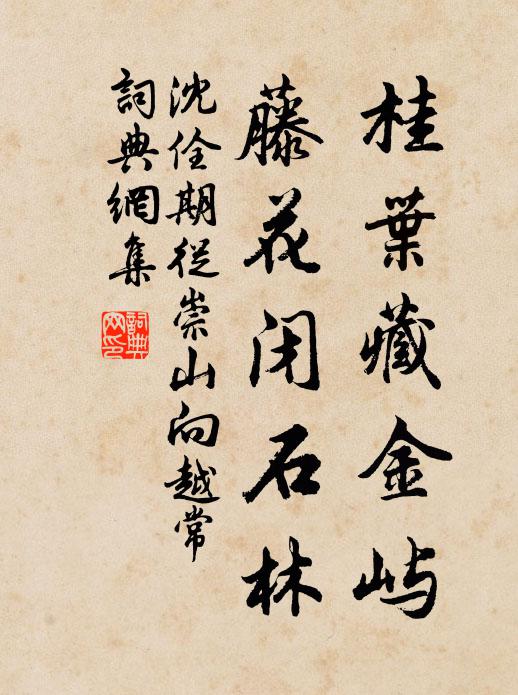 桂葉藏金嶼
藤花闭石林
沈佺期從崇山向越常
詞典網集
詞典網印